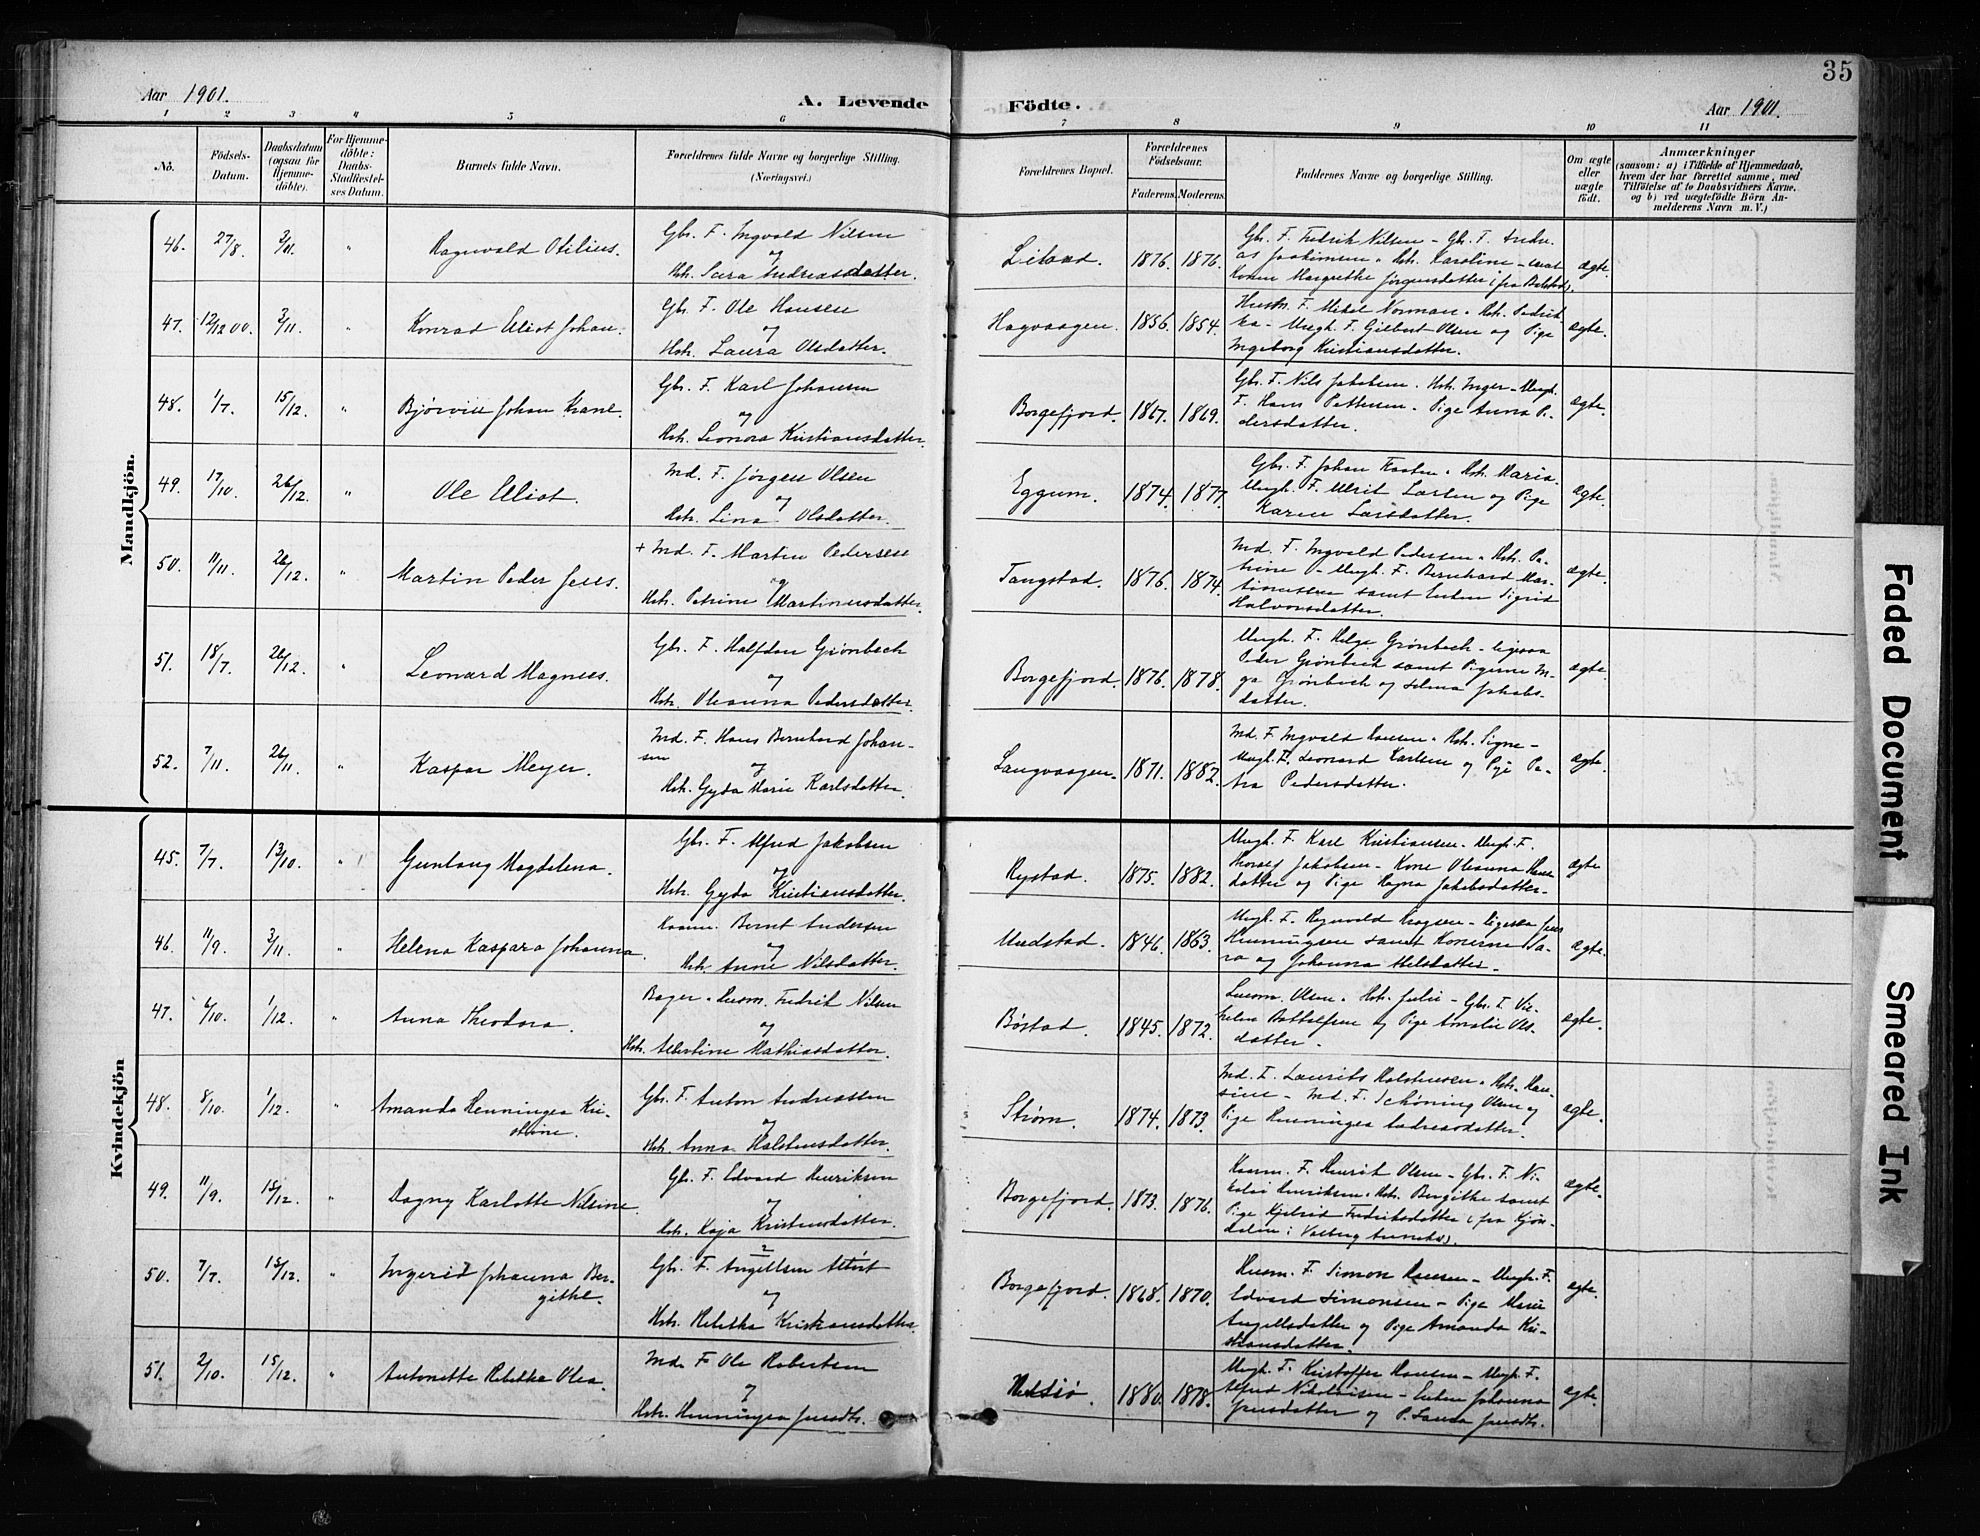 35
Aar 1901.
A. Levende Födte.
Aar 1901.
1 2 3 4 5 6 7 8 9 10 11
No.
Födsels-Datum.
Daabsdatum (ogsaa for Hjemme-döbte).
For Hjemme-döbte: Daabs-Stadfæstelses Datum.
Barnets fulde Navn.
Forældrenes fulde Navne og borgerlige Stilling.
(Næringsvei.)
Forældrenes Bopæl.
Forældrenes Födselsaar.
Faderens. Moderens.
Faddernes Navne og borgerlige Stilling.
Om ægte eller uægte födt.
Anmærkninger
(saasom: a) i Tilfælde af Hjemmedaab,
hvem der har forrettet samme, med
Tilföielse af to Daabsvidners Navne.
og b) ved uægtefödte Börn An-
melderens Navn m. V.)
Mandkjön.
46. 27/8. 3/11. " Ragnvald Otilius.
Gbr. F. Ingvald Nilsen
og
Hstr. Sara Andreasdatter.
1876. 1876.
Gbr. F. Fredrik Nilsen - Gbr. F. Andre-
as Joakimsen, Hstr. Karoline - samt
Konen Margrethe Jørgensdatter (fra Balstad).
ægte.
47. 12/12 00. 3/11. " Konrad Eliot Johan.
Gbr. F. Ole Hansen
og
Hstr. Laura Olsdatter.
Hagvaagen. 1856. 1854.
Husm. F. Mikal Norman, Hstr. Fredrik-
ka - Ungk. F. Gilbert Olsen og Pige
Ingeborg Kristiansdatter.
ægte.
48. 1/7. 15/12. " Bjørvill Johan Krane.
Gbr. F. Karl Johansen
og
Hstr. Leonora Kristiansdatter.
Borgefjord. 1867. 1869.
Gbr. F. Nils Jakobsen, Hstr. Inger - Ungk.
F. Hans Pettersen - Pige Anna Pe-
dersdatter.
ægte.
49. 17/10. 26/12. " Ole Eliot.
Ind. F. Jørgen Olsen
og
Hstr. Lina Olsdatter.
Eggum. 1874. 1877.
Gbr. F. Johan Kasten, Hstr. Maria.
Ungk. F. Ulrik Larsen og Pige
Karen Larsdatter.
ægte.
50. 11/11. 26/12. " Martin Peder Jens.
+ Ind. F. Martin Pedersen
og
Hstr. Petrine Martinusdatter.
Tangstad. 1876. 1874.
Ind. F. Ingvald Pedersen, Hstr. Pe-
trine - Ungk. F. Bernhard Mar-
tinussen samt Enken Sigrid
Halvorsdatter.
ægte.
51. 18/7. 26/12. " Leonard Magnus.
Gbr. F. Halfdan Grønbech
og
Hstr. Oleanna Pedersdatter.
Borgefjord. 1876. 1878.
Ungk. F. Helge Grønbech - ligesaa
Peder Grønbech samt Pigerne In-
ga Grønbech og Selma Jakobs-
datter.
ægte.
52. 7/11. 26/11. " Kaspar Meyer.
Ind. F. Hans Bernhard Johan-
sen
og
Hstr. Gyda Marie Karlsdatter.
Langvaagen. 1871. 1882.
Ind. F. Ingvald Hansen, Hstr. Signe -
Ungk. F. Leonard Karlsen og Pige Pe-
tra Pedersdatter.
ægte.
Kvindekjön
45. 7/7. 13/10. " Gunlaug Magdalena.
Gbr. F. Alfred Jakobsen
og
Hstr. Gyda Kristiansdatter.
Rystad. 1875. 1882.
Ungk. F. Karl Kristiansen - Ungk. F.
Thorolf Jakobsen - Kone Oleanna Hans-
datter og Pige Ragna Jakobsdatter.
ægte
46. 11/9. 3/11. " Helena Kaspara Johanna.
Kaarm. Bernt Andersen
og
Hstr. Anne Nilsdatter.
Undstad. 1846. 1863.
Ungk. F. Ragnvald - ligesaa Jens
Henningsen samt Konerne Sa-
ra og Johanna Nilsdatter.
ægte.
47. 6/10. 1/12. " Anna Theodora.
Bager, Husm. Fredrik Nilsen
og
Hstr. Albertine Mathiasdatter.
Bøstad. 1845. 1872.
Olsen, Hstr. Julie - Gbr. F. Vil-
helm og Pige Amalie Ols-
datter.
ægte.
48. 8/10. 1/12. " Amanda Henningea Kri-
stine.
Gbr. F. Anton Andreassen
og
Hstr. Anna Halstensdatter.
Strøm. 1874. 1873.
Ind. F. Laurits Halstensen, Hstr. Han-
sine - Ind. F. Schøning Olsen og
Pige Henningea Andreasdatter.
ægte.
49. 11/9. 15/12. " Dagny Karlotte Nilsine.
Gbr. F. Edvard Henriksen
og
Hstr. Kaja Kristensdatter.
Borgefjord. 1873. 1876.
Kaarm. F. Henrik Olsen - Gbr. F. Ni-
kolai Henriksen, Hstr. Bergithe samt
Pige Hjelrid Fredriksdatter (fra Kjøn-
dalen i Valberg Anneks).
ægte.
50. 7/7. 15/12. " Ingerid Johanna Ber-
githe.
Gbr. F. Angellsen Altert
og
Hstr. Rebekka Kristiansdatter.
Borgefjord. 1868. 1870.
Husm. F. Simon Hansen - Ungk. F.
Edvard Simonsen - Pige Marie
Angellsdatter og Pige Amanda Kri-
stiansdatter.
ægte.
51. 2/10. 15/12. " Antonette Rebekka Olea.
Ind. F. Ole Robertsen
og
Hstr. Henningea Jensdtr.
1880. 1878.
Ungk. F. Kristoffer Hansen - Ungk. F.
Alfred Nikolaisen - Enken Johanna
Jensdatter og P. Laura Jensdtr.
ægte.
Faded Document
Smeared Ink